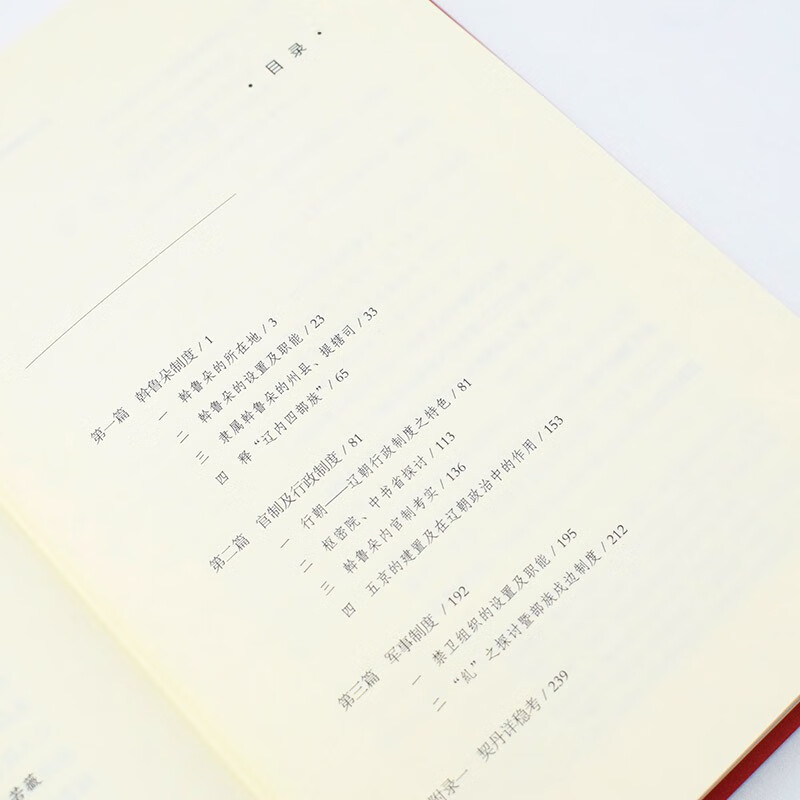 · 目录 ·
第一篇 斡鲁朵制度 / 1
一 斡鲁朵的所在地 / 3
二 斡鲁朵的设置及职能 / 23
三 隶属斡鲁朵的州县、提辖司 / 33
四 释“辽内四部族” / 65
第二篇 官制及行政制度 / 81
一 行朝——辽朝行政制度之特色 / 81
二 枢密院、中书省探讨 / 113
三 斡鲁朵内官制考实 / 136
四 五京的建置及在辽朝政治中的作用 / 153
第三篇 军事制度 / 192
一 禁卫组织的设置及职能 / 195
二 “乣”之探讨暨部族戍边制度 / 212
附录一 契丹详稳考 / 239
若薇